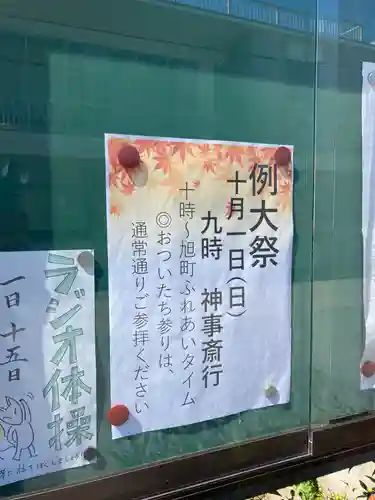 例大祭
十月一日(日)
九時　神事斎行
十時～旭町ふれあいタイム
◎おついたち参りは、
通常通りご参拝ください
ラジオ体操
一日 十五日